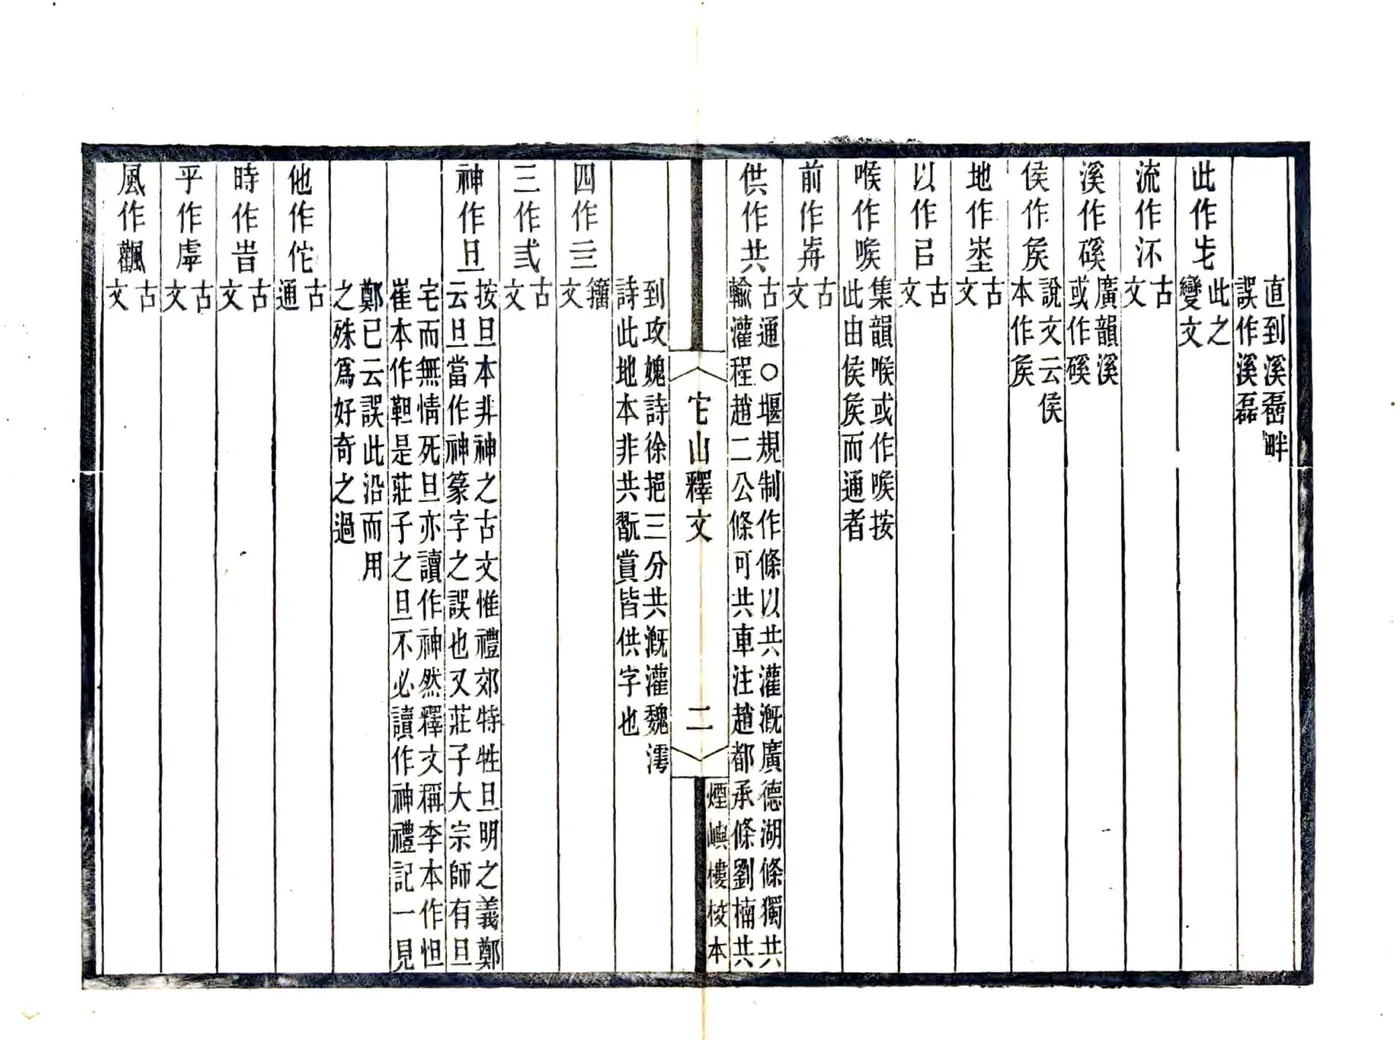 直到溪磊畔
誤作溪磊
此作𡴎此之
變文
流作㳅古
文
溪作磎廣韻溪
或作磎
侯作矦說文云侯
本作矦
地作埊古
文
以作㠯古
文
喉作㗋集韻喉或作㗋按
此由侯矦而通者
前作歬古
文
供作共古通○堰規制作條以共灌漑廣德湖條獨共
輸灌程趙二公條可共車注趙都承條劉楠共
它山釋文
二
煙嶼樓校本
到攻媿詩徐挹三分共漑灌魏澪
詩此地本非共翫賞皆供字也
四作亖籀
文
三作弎古
文
神作旦按旦本非神之古文惟禮郊特牲旦明之義鄭
云旦當作神篆字之誤也又莊子大宗師有旦
宅而無情死旦亦讀作神然釋文稱李本作怛
崔本作靼是莊子之旦不必讀作神禮記一見
鄭已云誤此沿而用
之殊爲好奇之過
他作佗古
通
時作旹古
文
平作虖古
文
風作飌古
文